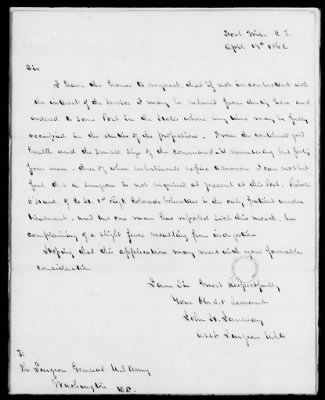 Fort Wise C. T.
April 19th 1862
Sir
I have the honor to request, that if not inconsistent with
the interest of the service I may be relieved from duty here and
ordered to some Post in the States where my time may be fully
occupied in the duties of the profession. From the continued good
health and the small size of the command it numbering but forty
four men, three of whom are I can not but
feel that a surgeon is not required at present at this Post. Private
of Co 1st Regt Colorado Volunteers is the only patient under
treatment, and but one man has reported sick this month, he
complaining of a slight fever resulting from indigestion
Hoping that this application may meet with your favorable
consideration
I am Sir Most Respectfully
Your Obedt Servant
John H. Janeway
Asst Surgeon USA
To
The Surgeon General U.S. Army
Washington D.C.